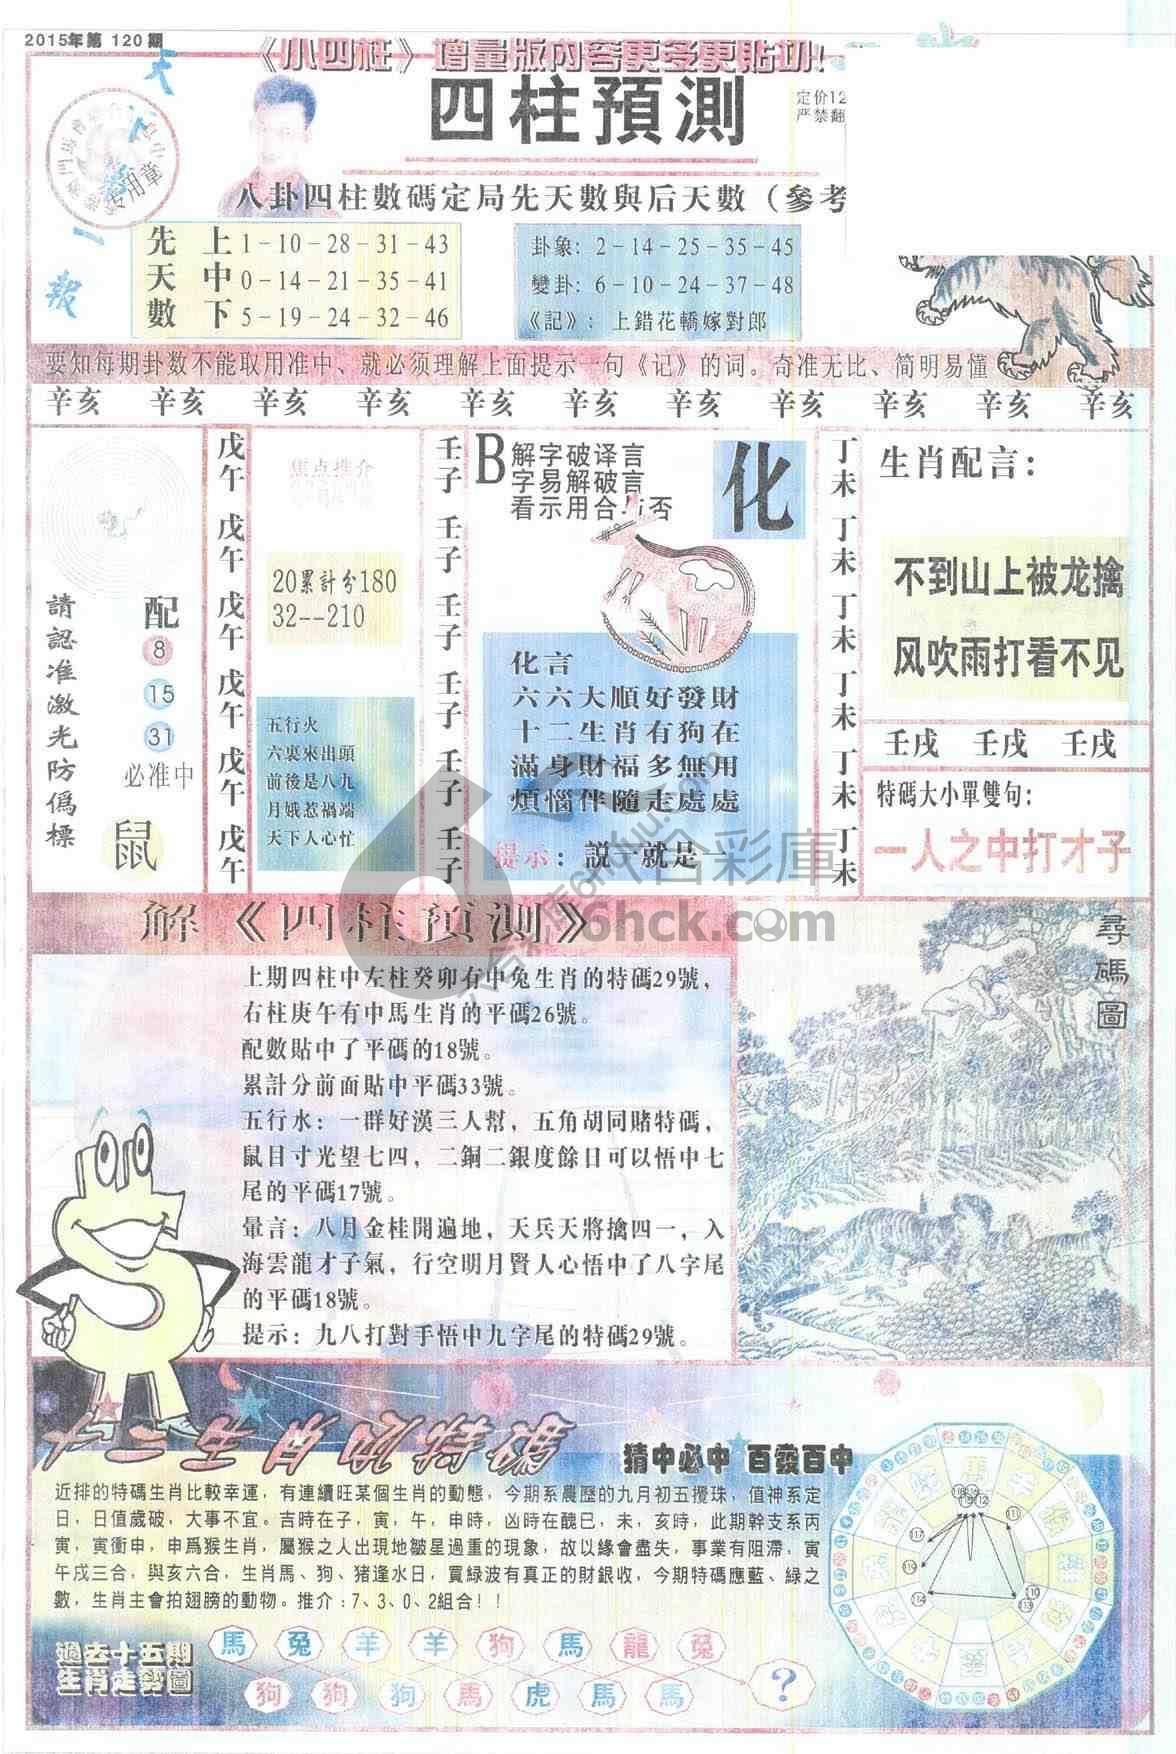 2015年第 120 期
《小四柱》增量版內容更多更貼切!
四柱預測
定价12
严禁翻
八卦四柱數碼定局先天數與后天數（參考
先天數
上 1-10-28-31-43
中 0-14-21-35-41
下 5-19-24-32-46
卦象: 2-14-25-35-45
變卦: 6-10-24-37-48
《記》: 上錯花轎嫁對郎
要知每期卦数不能取用准中、就必须理解上面提示一句《记》的词。奇准无比、简明易懂
辛亥 辛亥 辛亥 辛亥 辛亥 辛亥 辛亥 辛亥 辛亥 辛亥 辛亥
請認准激光防僞標
配
8
15
31
必准中
鼠
戊午 戊午 戊午 戊午 戊午 戊午
焦点推介
20累計分180
32--210
五行火
六裏來出頭
前後是八九
月娥惹禍端
天下人心忙
壬子 壬子 壬子 壬子 壬子 壬子
B 解字破译言
字易解破言
看示用合与否
化
化言
六六大順好發財
十二生肖有狗在
滿身財福多無用
煩惱伴隨走處處
提示: 説一就是一
丁未 丁未 丁未 丁未 丁未 丁未
生肖配言:
不到山上被龙擒
风吹雨打看不见
壬戌 壬戌 壬戌
特碼大小單雙句:
一人之中打才子
六合彩庫
6hck.com
解《四柱預測》
上期四柱中左柱癸卯有中兔生肖的特碼29號,
右柱庚午有中馬生肖的平碼26號。
配數貼中了平碼的18號。
累計分前面貼中平碼33號。
五行水: 一群好漢三人幫, 五角胡同賭特碼,
鼠目寸光望七四, 二銅二銀度餘日可以悟中七
尾的平碼17號。
暈言: 八月金桂開遍地, 天兵天將擒四一, 入
海雲龍才子氣, 行空明月賢人心悟中了八字尾
的平碼18號。
提示: 九八打對手悟中九字尾的特碼29號。
尋碼圖
猜中必中 百發百中
近排的特碼生肖比較幸運, 有連續旺某個生肖的動態, 今期系農歷的九月初五攪珠, 值神系定
日, 日值歲破, 大事不宜。吉時在子, 寅, 午, 申時, 凶時在醜巳, 未, 亥時, 此期幹支系丙
寅, 寅衝申, 申爲猴生肖, 屬猴之人出現地皺星過重的現象, 故以緣會盡失, 事業有阻滯, 寅
午戌三合, 與亥六合, 生肖馬、狗、猪逢水日, 買綠波有真正的財銀收, 今期特碼應藍、綠之
數, 生肖主會拍翅膀的動物。推介:7、3、0、2組合!!
過去十五期
生肖走勢圖
馬 兔 羊 羊 狗 馬 龍 兔
狗 狗 狗 馬 虎 馬 馬 ?